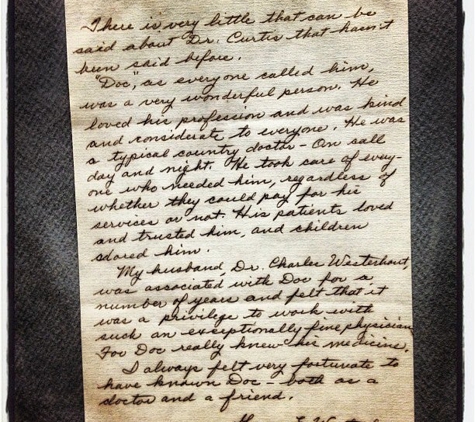 There is very little that can be
said about Dr. Curtis that hasn't
been said before.
"Doc," as everyone called him,
was a very wonderful person. He
loved his profession and was kind
and considerate to everyone. He was
a typical country doctor - On call
day and night. He took care of every-
one who needed him, regardless of
whether they could pay for his
services or not. His patients loved
and trusted him, and children
adored him.
My husband, Dr. Charles Westerhout,
was associated with Doc for a
number of years and felt that it
was a privilege to work with
such an exceptionally fine physician
For Doc really knew his medicine.
I always felt very fortunate to
have known Doc - both as a
doctor and a friend.